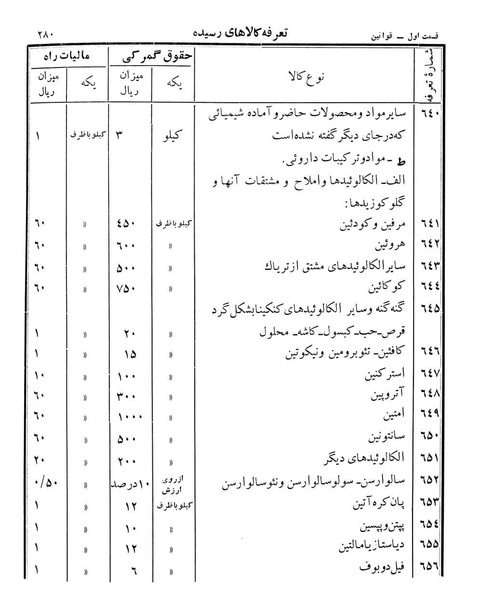 قسمت اول ــ قوانین تعرفه کالاهای رسیده ۲۸۰
شمارهٔ تعرفه نوع کالا حقوق گمرکی مالیات راه
یکه میزان ریال یکه میزان ریال
۶۴۰ سایر مواد و محصولات حاضر و آماده شیمیائی
که در جای دیگر گفته نشده است کیلو ۳ کیلو با ظرف ۱
ط ــ مواد و ترکیبات داروئی.
الف ــ الکالوئیدها و املاح و مشتقات آنها و
گلو کوزیدها:
۶۴۱ مرفین و کودئین کیلو با ظرف ۴۵۰ » ۶۰
۶۴۲ هروئین » ۶۰۰ » ۶۰
۶۴۳ سایر الکالوئیدهای مشتق از تریاك » ۵۰۰ » ۶۰
۶۴۴ کوکائین » ۷۵۰ » ۶۰
۶۴۵ گنه گنه و سایر الکالوئیدهای کنکینا بشکل گرد
قرص ــ حب ــ کبسول ــ کاشه ــ محلول » ۲۰ » ۱
۶۴۶ کافئین ــ تئوبرومین و نیکوتین » ۱۵ » ۱
۶۴۷ استرکنین » ۱۰۰ » ۱۰
۶۴۸ آتروپین » ۳۰۰ » ۶۰
۶۴۹ امتین » ۱۰۰۰ » ۶۰
۶۵۰ سانتونین » ۵۰۰ » ۶۰
۶۵۱ الکالوئیدهای دیگر » ۲۰۰ » ۲۰
۶۵۲ سالوارسن ــ سولوسالوارسن و نئوسالوارسن از روی ارزش ۱۰ درصد » ۰/۵۰
۶۵۳ پان کره آتین کیلو با ظرف ۱۲ » ۱
۶۵۴ پپتن و پپسین » ۱۰ » ۱
۶۵۵ دیاستاز یا مالتین » ۱۲ » ۱
۶۵۶ فیل دو بوف » ۶ » ۱